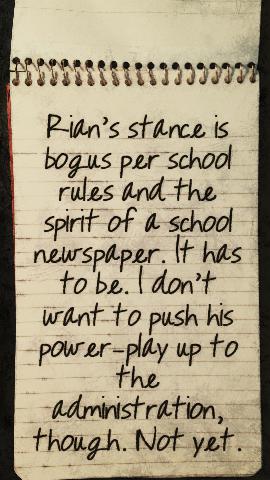 Rian's stance is
bogus per school
rules and the
spirit of a school
newspaper. It has
to be. I don't
want to push his
power-play up to
the
administration,
though. Not yet.